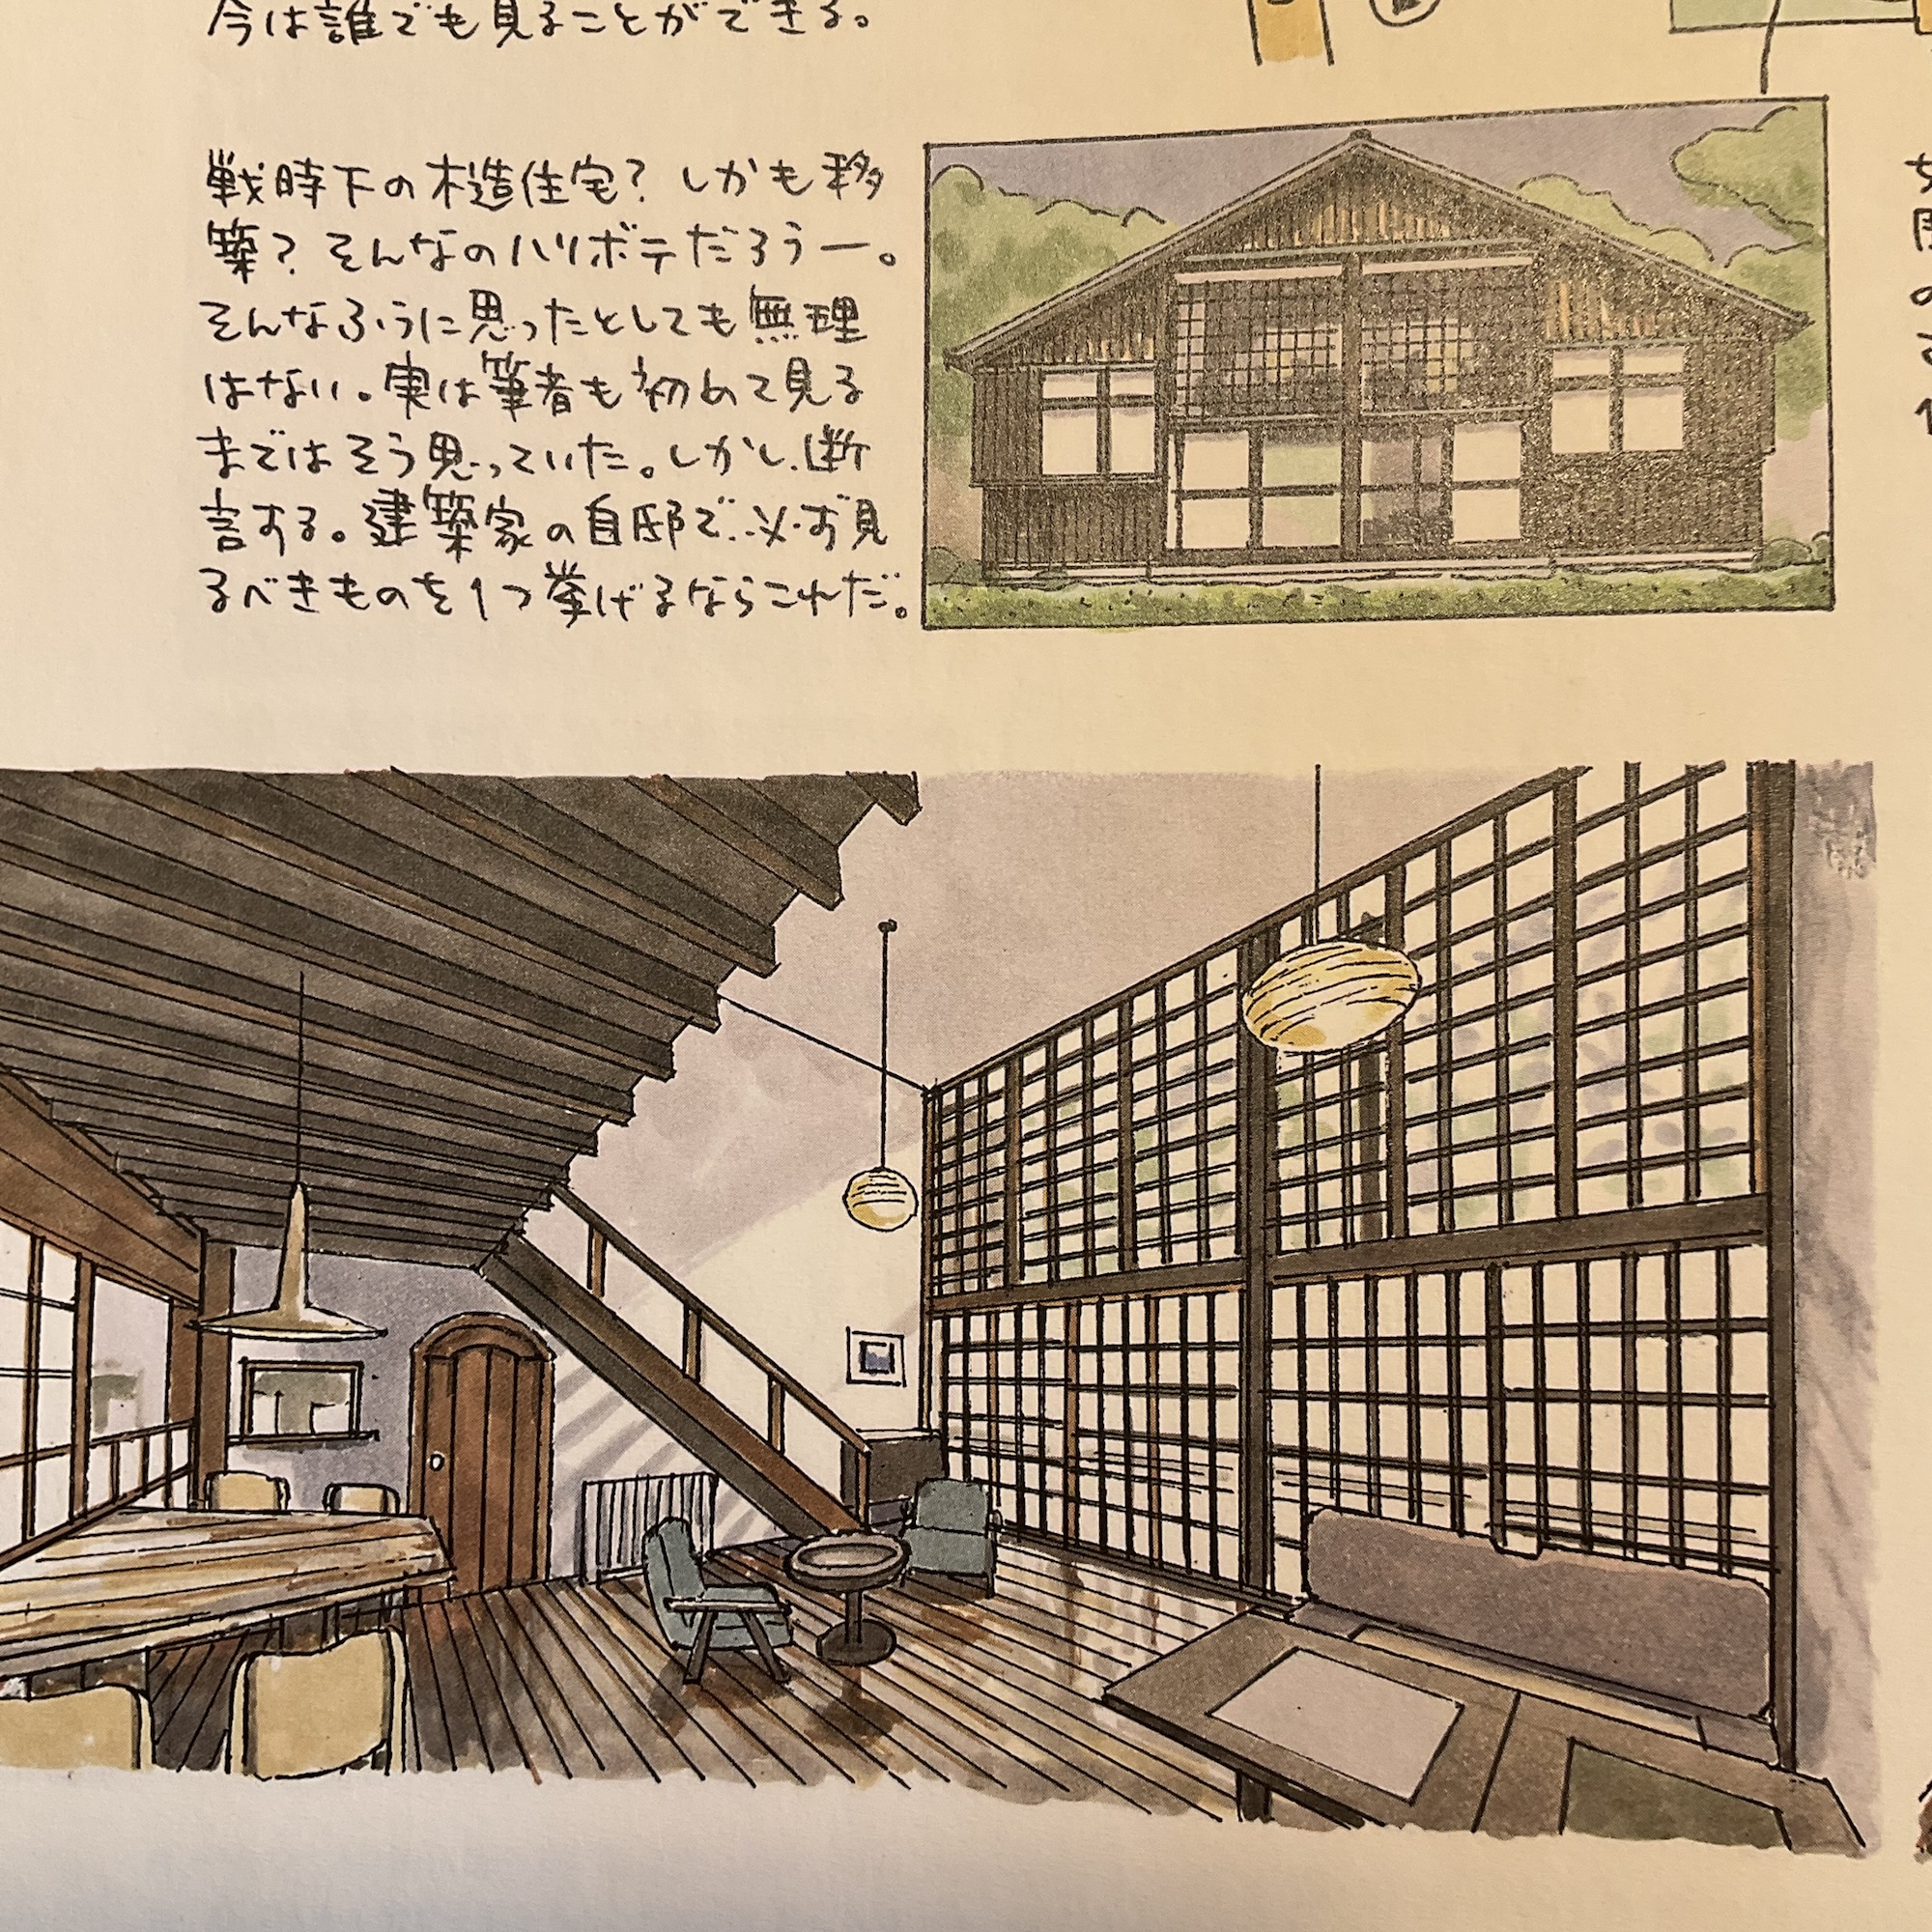 今は誰でも見ることができる。
戦時下の木造住宅？しかも移
築？そんなのハリボテだろうー。
そんなふうに思ったとしても無理
はない。実は筆者も初めて見る
まではそう思っていた。しかし、断
言する。建築家の自邸で、必ず見
るべきものを1つ挙げるならこれだ。